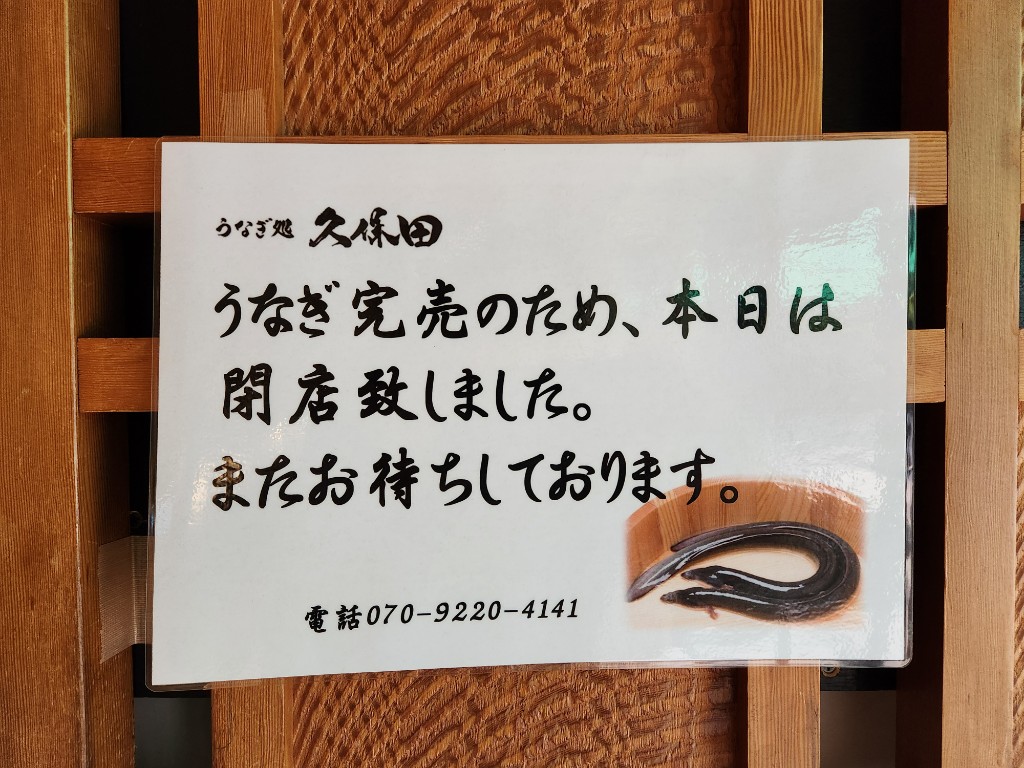 うなぎ処 久保田
うなぎ完売のため、本日は
閉店致しました。
またお待ちしております。
電話070-9220-4141